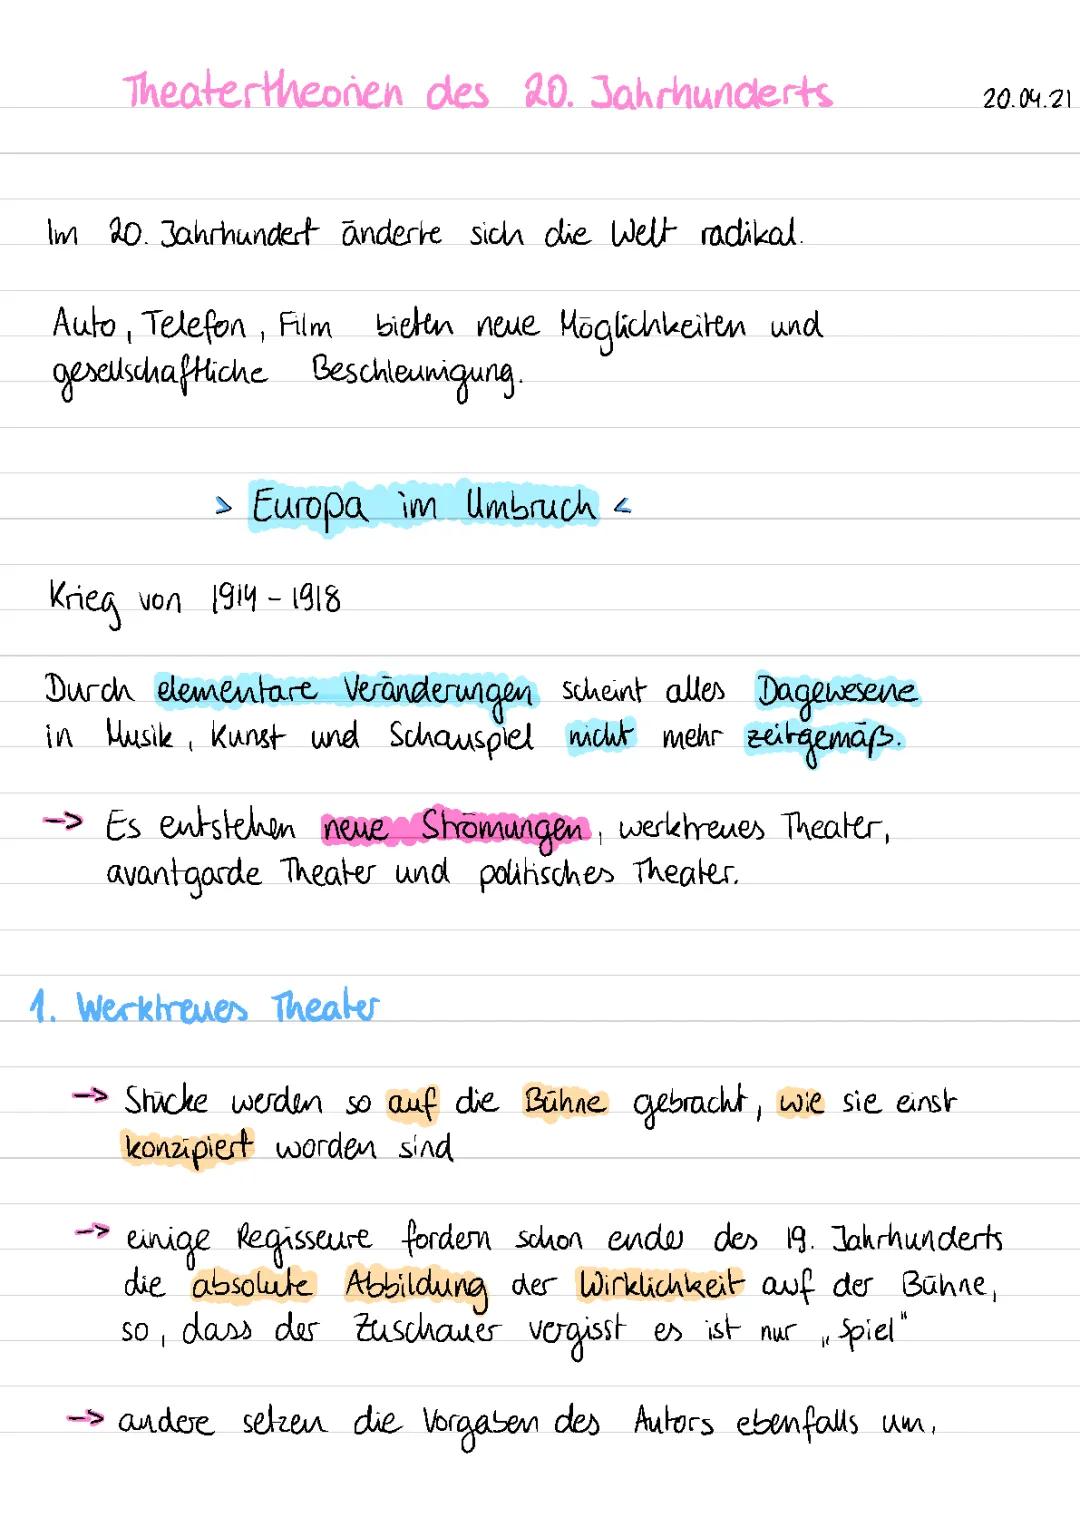 Theatertheorien des 20. Jahrhunderts
20.04.21
Im 20. Jahrhundert änderte sich die Welt radikal.
Auto, Telefon, Film bieten neue Möglichkeiten und
gesellschaftliche Beschleunigung.
> Europa im Umbruch <
Krieg von 1914-1918
Durch elementare Veränderungen scheint alles Dagewesene
in Musik, Kunst und Schauspiel nicht mehr zeitgemäß.
-> Es entstehen neue Strömungen, werktreues Theater,
avantgarde Theater und politisches Theater.
1. Werktreues Theater
-> Stücke werden so auf die Bühne gebracht, wie sie einst
konzipiert worden sind
-> einige Regisseure fordern schon ende des 19. Jahrhunderts
die absolute Abbildung der Wirklichkeit auf der Bühne,
so, dass der Zuschauer vergisst es ist nur „Spiel"
-> andere setzen die Vorgaben des Autors ebenfalls um,